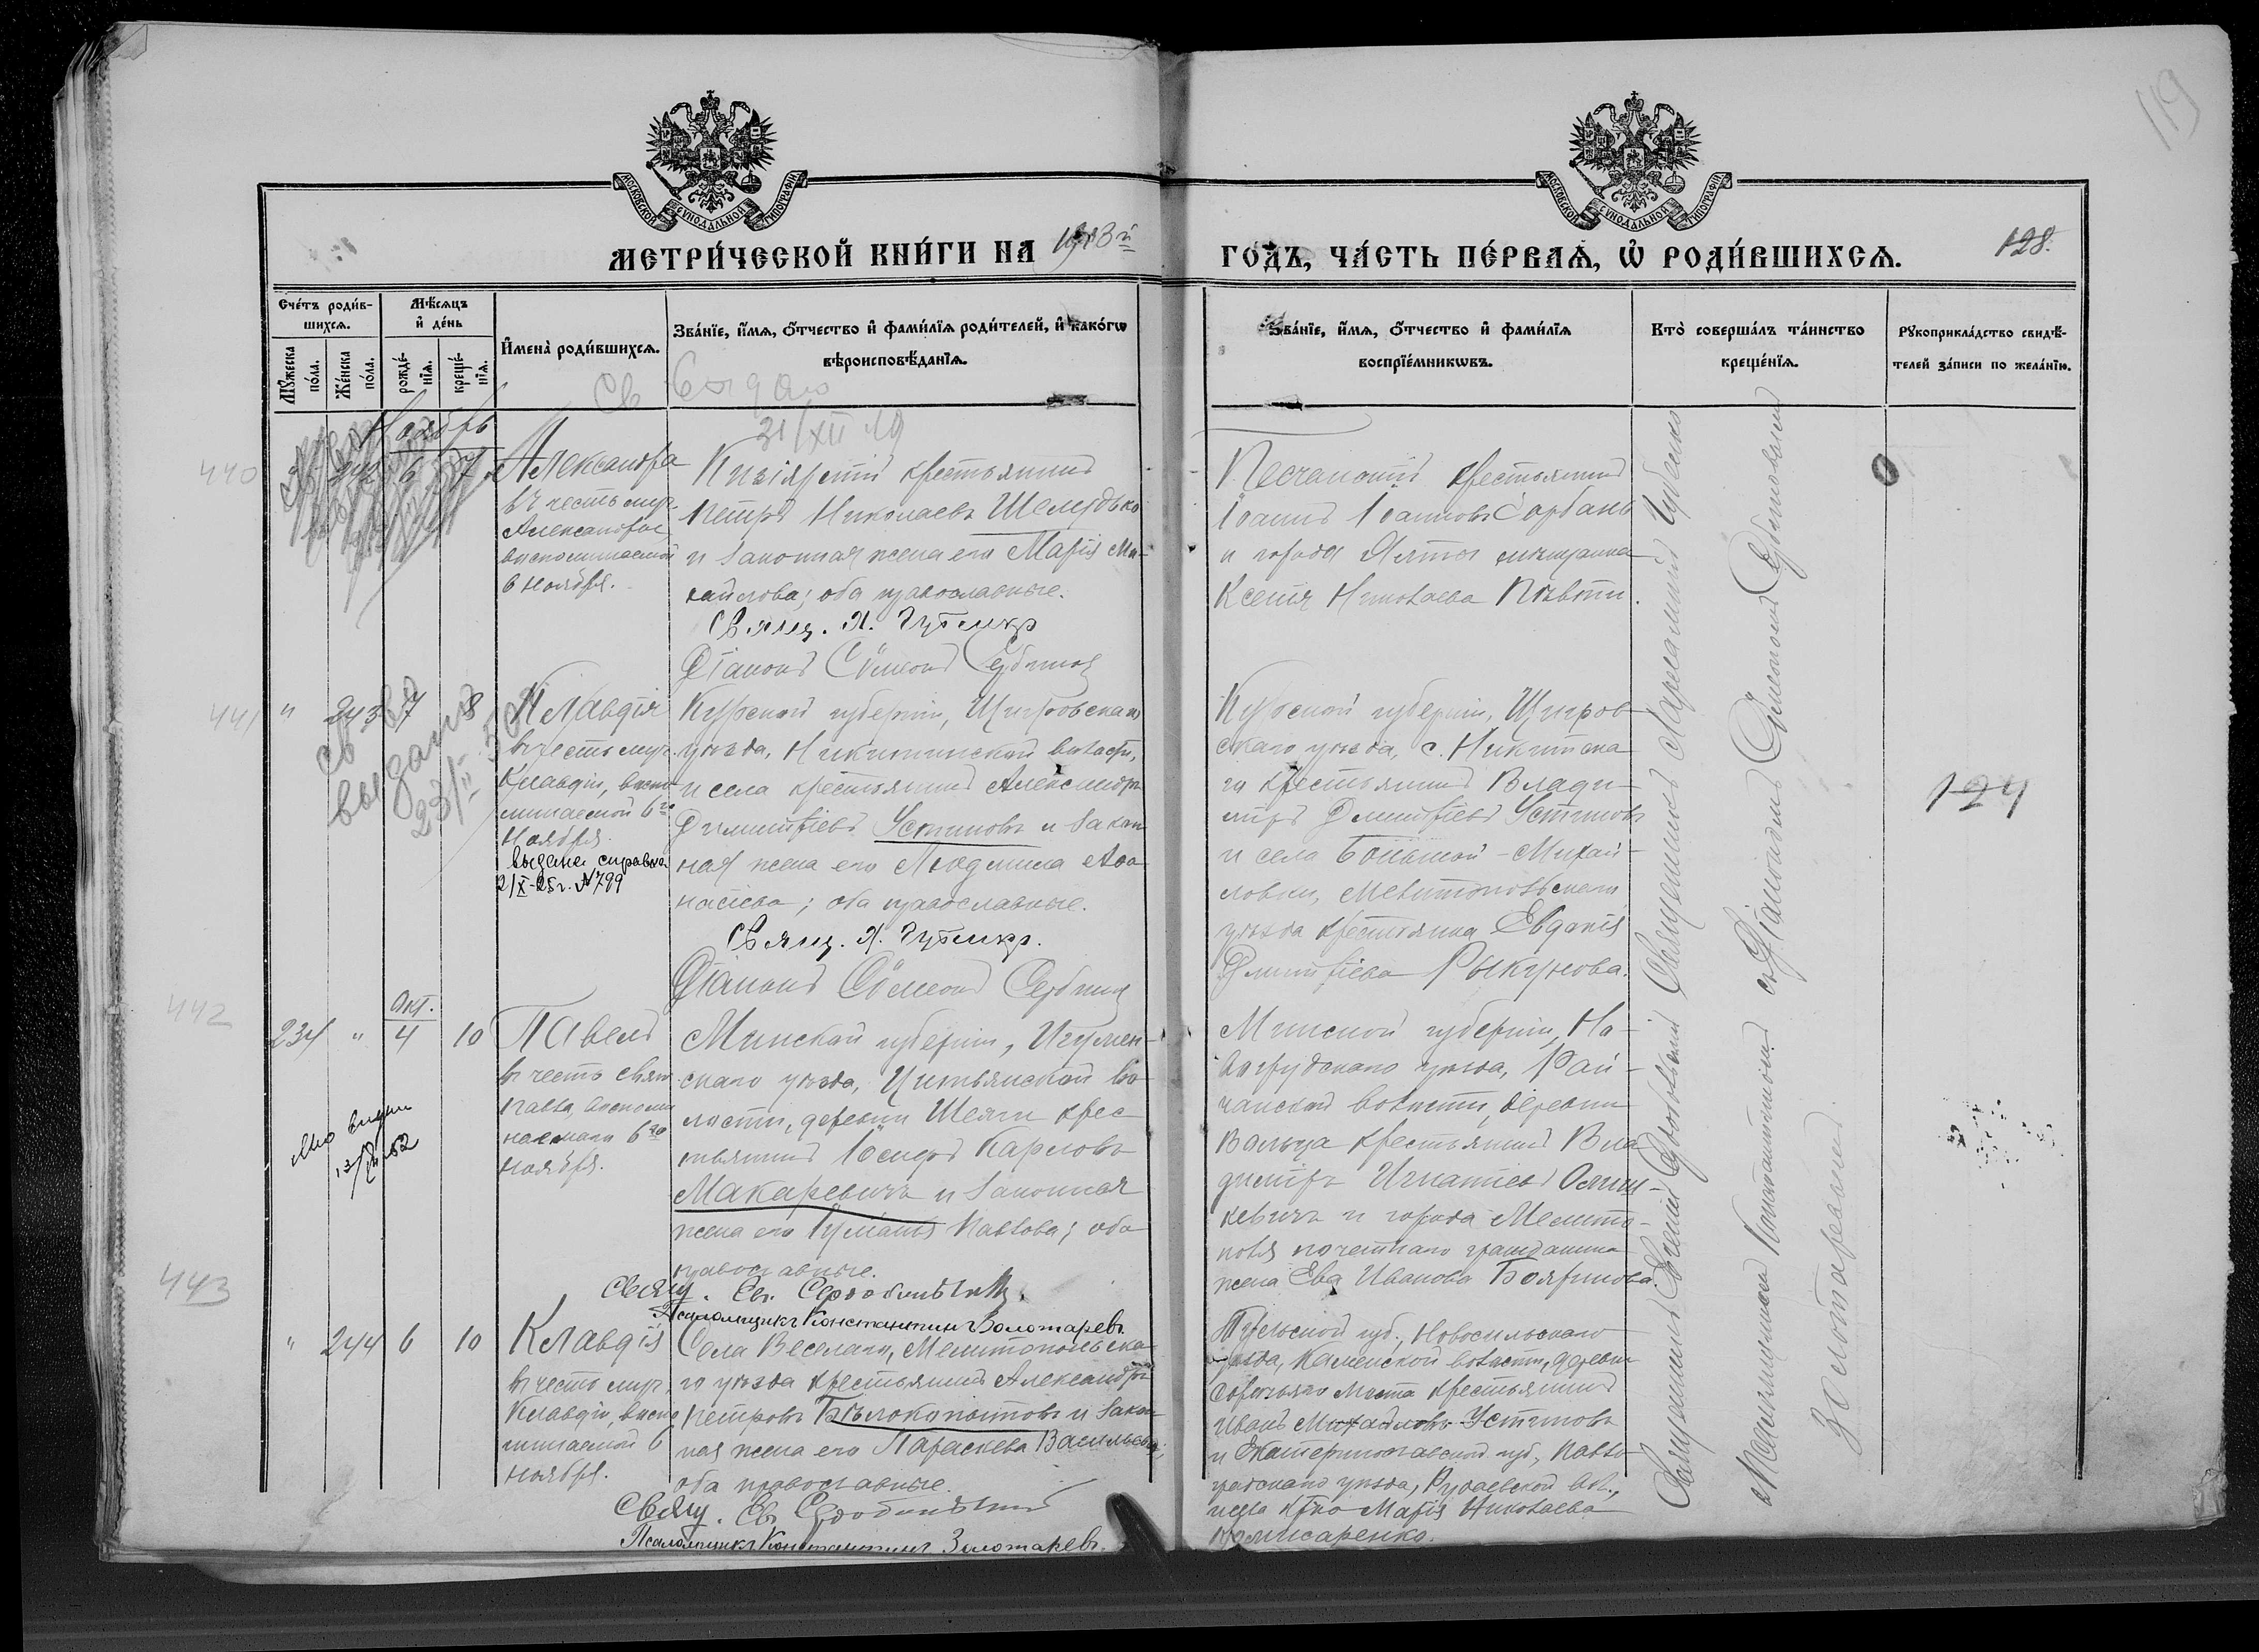 119
МОСКОВСКОЙ СУНОДАЛЬНОЙ ТИПОГРАФІИ
МОСКОВСКОЙ СУНОДАЛЬНОЙ ТИПОГРАФІИ
МЕТРИ́ЧЕСКОЙ КНИ́ГИ НА 1913й
ГО́ДЪ, ЧА́СТЬ ПЕ́РВАѦ, Ѡ҆ РОДИ́ВШИХСѦ.
128.
Сче́тъ роди́в-
шихсѧ.
Мꙋ́жеска
по́ла.
Же́нска
по́ла.
Мѣ́сѧцъ
и҆ де́нь
рожде́-
нїѧ.
креще́-
нїѧ.
И҆мена̀ роди́вшихсѧ.
Зва́нїе, и҆́мѧ, о҆́тчество и҆ фами́лїѧ роди́телей, и҆ како́гѡ
вѣроисповѣ́данїѧ.
Зва́нїе, и҆́мѧ, о҆́тчество и҆ фами́лїѧ
воспрїе́мникѡвъ.
Кто̀ соверша́лъ та́инство
креще́нїѧ.
Рꙋкоприкла́дство свидѣ́-
телей за́писи по жела́нїю.
Св выдано
31/XII 19
Ноябрь
440
242 6 7
Александра
въ честь муч.
Александры,
воспоминаемой
6 Ноября.
крестьянинъ
Петръ Николаевъ Шелудько
и законная жена его Марія Ми-
хайлова; оба православные.
Свящ. Л.
Діаконъ Сѵмеонъ
Песчанскій крестьянинъ
Іоаннъ Іоанновъ Горбань
и города Ялты мѣщанка
Ксенія Николаева
441
" 243 7 8
Св
выдано
23/II
Клавдія
въ честь муч.
Клавдіи, воспо-
минаемой 6го
Ноября.
выдана справка
2/X-25г. №799
Курской губерніи, Щигровскаго
уѣзда, Никитинской волости,
и села крестьянинъ Александръ
Димитріевъ Устиновъ и закон-
ная жена его Людмила Аѳа-
насіева; оба православные.
Свящ. Л.
Діаконъ Сѵмеонъ
Курской губерніи, Щигров-
скаго уѣзда, с. Никитска-
го крестьянинъ Влади-
міръ Димитріевъ Устиновъ
и села Большой-Михай-
ловки, Мелитопольскаго
уѣзда крестьянка Евдокія
Димитріева Рыкунова.
124
442
Окт.
234 " 4 10
Павелъ
въ честь свят.
Павла, воспоми-
наемаго 6го
Ноября.
Минской губерніи, Игумен-
скаго уѣзда, Цитвянской во-
лости, деревни крес-
тьянинъ Іосифъ Карловъ
Макаревичъ и законная
жена его Іуліанія Павлова; оба
православные.
Свящ. Ев.
Псаломщикъ Константинъ Золотаревъ.
Минской губерніи, Но-
вогрудскаго уѣзда, Рай-
чанской волости, деревни
крестьянинъ Вла-
диміръ Игнатіевъ
кевичъ и города Мелито-
поля почетнаго гражданина
жена Ева Иванова Бояринова.
443
" 244 6 10
Клавдія
въ честь муч.
Клавдіи, воспо-
минаемой 6
Ноября.
Села Веселаго, Мелитопольска-
го уѣзда крестьянинъ Александръ
Петровъ Бѣлокопытовъ и закон-
ная жена его Параскева Васильева;
оба православные.
Свящ. Ев.
Псаломщикъ Константинъ Золотаревъ.
Тульской губ., Новосильскаго
уѣзда, Каменской волости, деревни
мѣста крестьянинъ
Иванъ Михайловъ Устиновъ
и Екатеринославской губ., Павло-
градскаго уѣзда,
Марія Николаева
Священникъ Харлампій
съ Діакономъ Сѵмеономъ
Священникъ Евгеній
съ Псаломщикомъ Константиномъ
Золотаревымъ